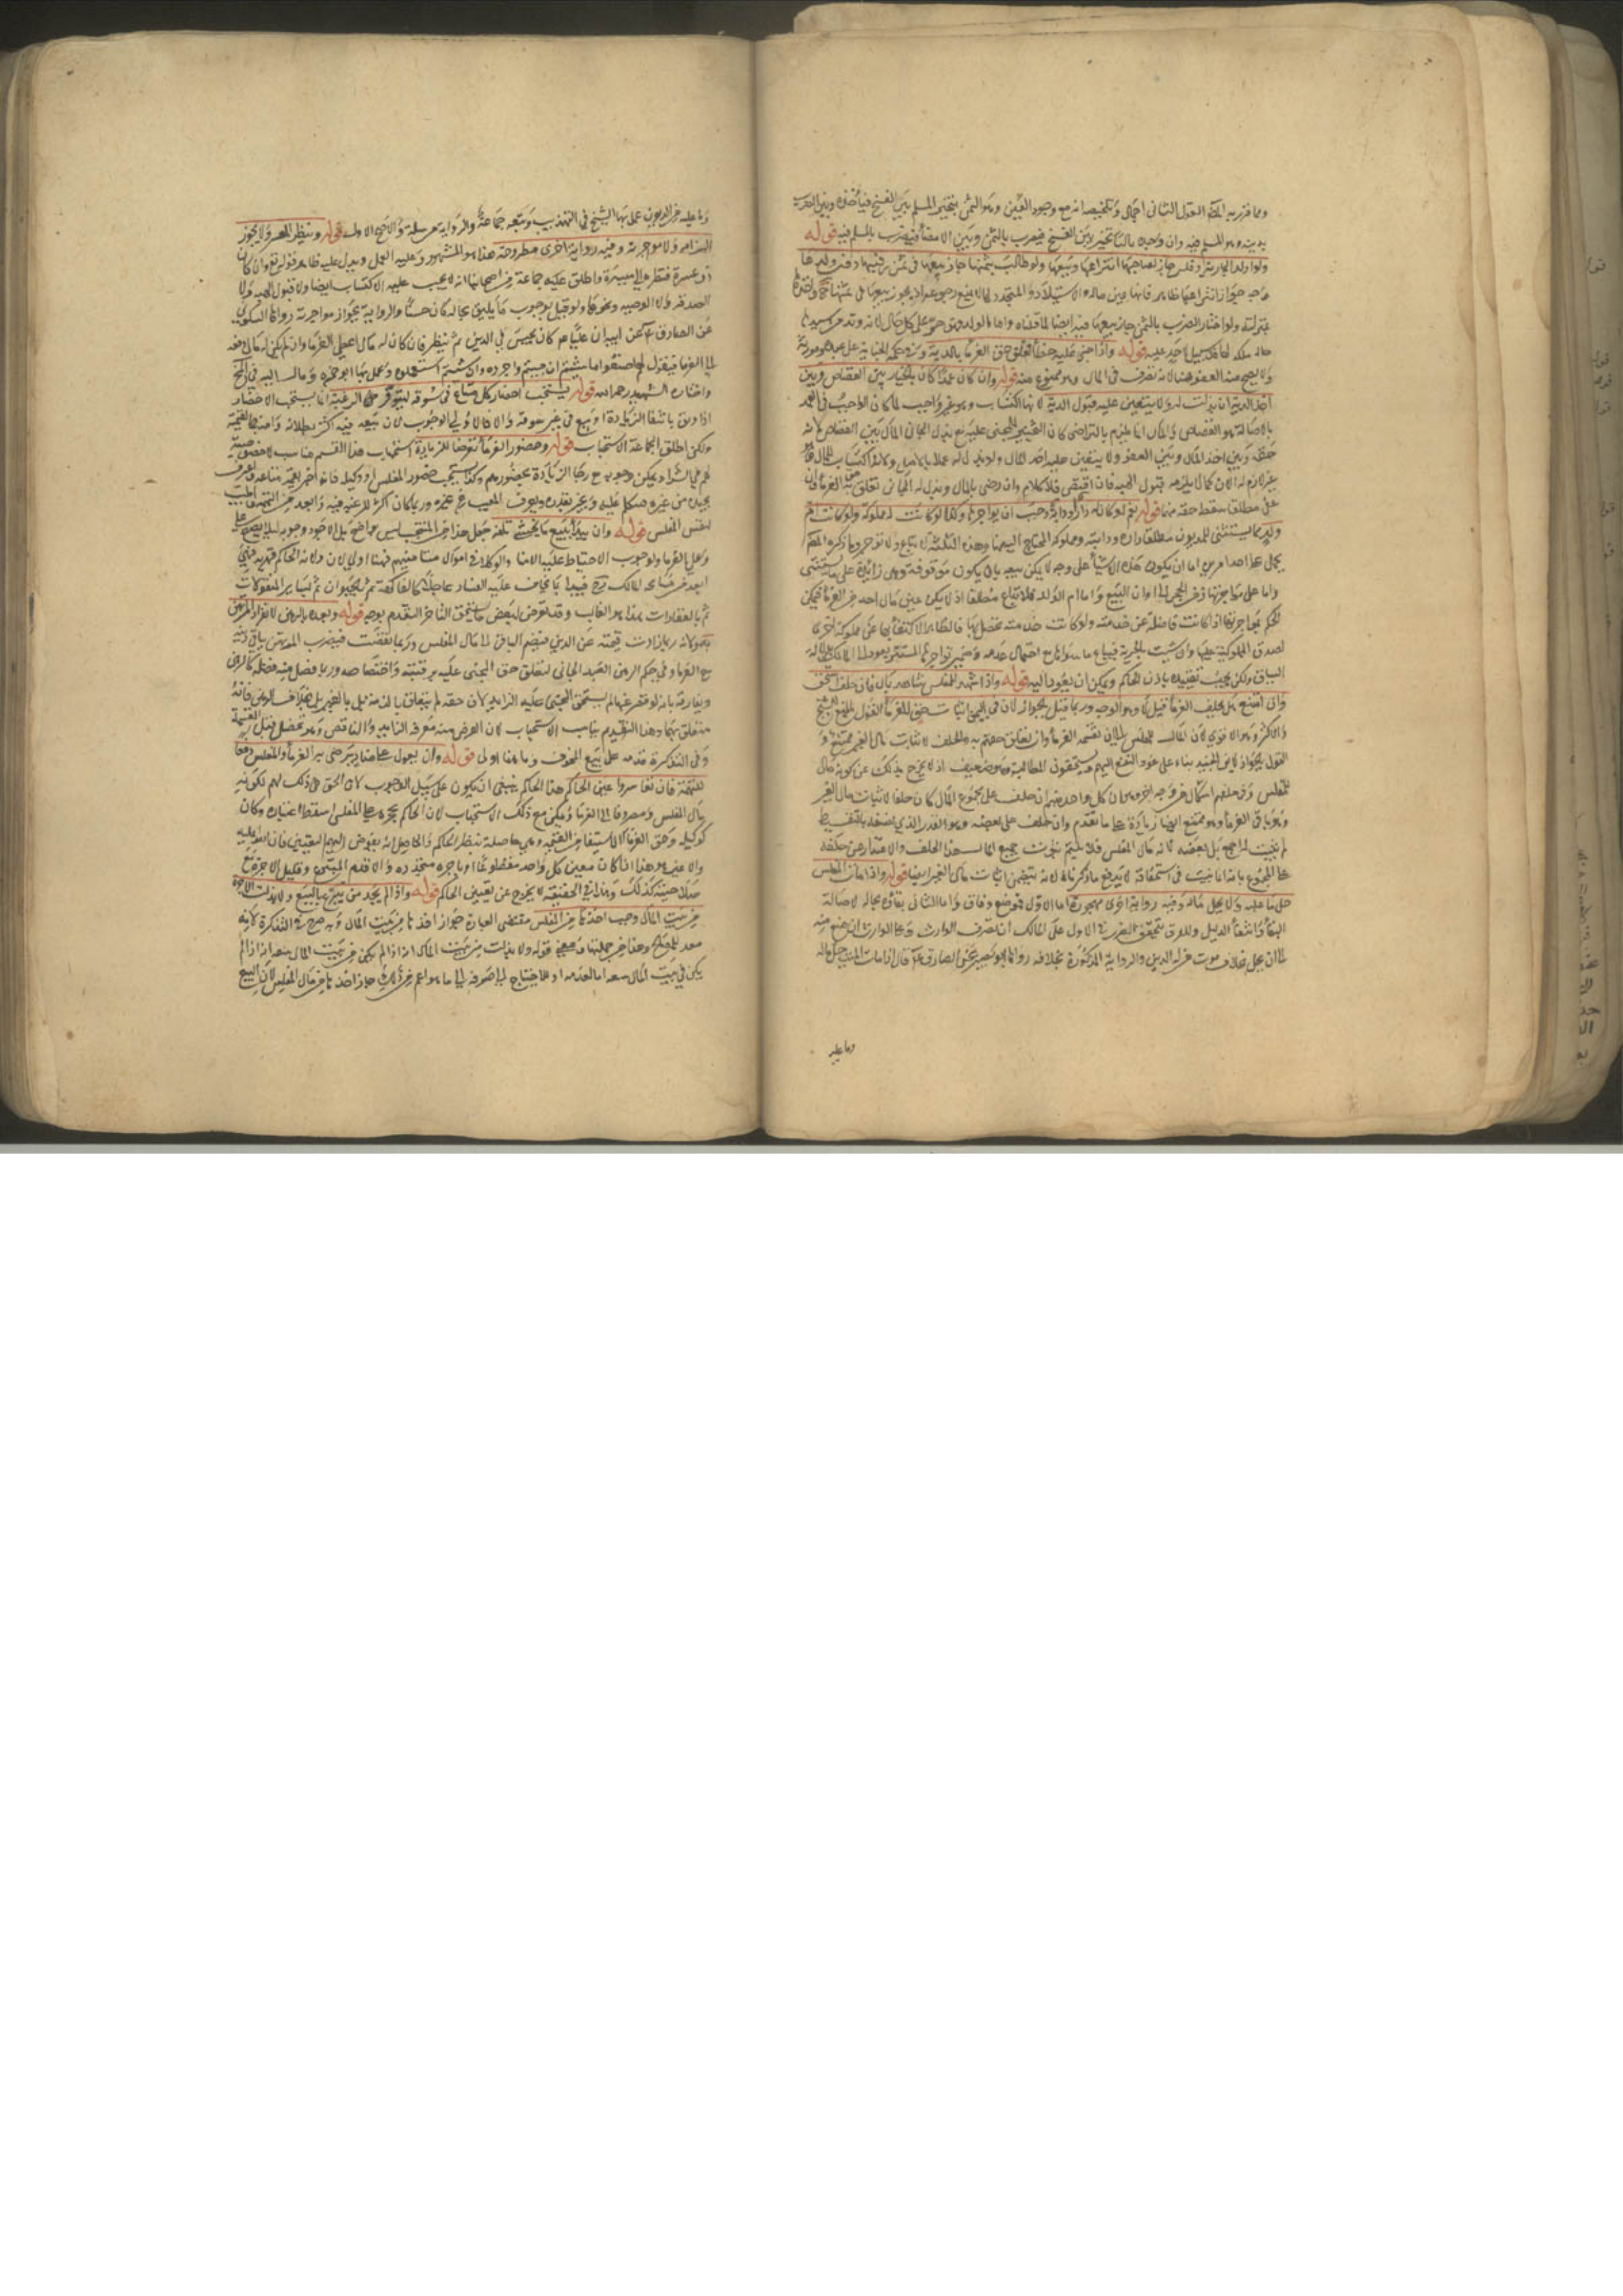 ومما قرر به المصنف القول الثانى اجمال وتلخيصه انه مع وجود العين وهو الثمن يتخير المسلم بين الفسخ فياخذه وبين الضرب
بدينه وهو المسلم فيه وان وجده بالتاخير بين الفسخ فيضرب بالثمن وبين الامضا فيضرب بالمسلم فيه قوله
ولو اولد الجارية ثم فلس جاز لصاحبها انتزاعها وبيعها ولو طالب بثمنها جاز بيعها فى ثمن رقبتها دون ولدها
وجه جواز انتزاعها ظاهر فانها عين ماله والاستيلاد المتجدد لا يمنع
بمنزلته ولو اختار الضرب بالثمن جاز بيعها فيه ايضا لما قلناه واما الولد فهو حر على كل حال لانه ولد حر من سيدها
حال ملكه لها فلا سبيل لاحد عليه قوله واذا جنى عليه خطأ تعلق حق الغرما بالدية
ولا يصح منه العفو هنا لانه تصرف فى المال وهو ممنوع منه قوله وان كان عمدا كان بالخيار بين القصاص وبين
اخذ الدية ان بذلت له ولا يتعين عليه قبول الدية لانها اكتساب وهو غير واجب لما كان الواجب فى العمد
بالاصالة هو القصاص والمال انما يلزم بالتراضى كان المجنى عليه مع بذل الجانى المال بين القصاص لانه
حقه وبين اخذ المال وبين العفو ولا يتعين عليه اخذ المال ولا بذله له عملا بالاصل ولانه اكتساب للمال
غير لازم له الان كما لا يلزمه قبول الهبة فان اقتص فلا كلام وان رضى بالمال وبذله له الجانى تعلق به حق الغرما وان
عفى مطلقا سقط حقه منها قوله نعم لو كان له دار او دابة وجب ان يواجرها وكذا لو كانت له مملوكة ولو كانت ام
ولد مما يستثنى للمديون مطلقا داره ودابته ومملوكه المحتاج اليها وهذه الثلثة لا تباع ولا تواجر وما ذكره المصنف
يحمل على احد امرين اما ان يكون هذه الاشيا على وجه لا يمكن بيعه بان يكون موقوفة وهى زائدة على ما يستثنى
واما على تاخيرها زمن الحجر الى اوان البيع واما ام الولد فلا تباع مطلقا اذ لم يكن عين مال احد من الغرما فيمكن
الحكم بمواجرتها اذا كانت فاضلة عن خدمته ولو كانت خدمته تحصل بها فالظاهر الاكتفا بها عن مملوكة اخرى
لصدق المملوكية عليها وان تشبثت بالحرية فيباع ما سواها مع احتمال عدمه وضمير يواجرها المستتر يعود الى المالك لدلالة
السياق ولكن يجب تقييده باذن الحاكم ويمكن ان يعود اليه قوله واذا شهد للمفلس شاهد بمال فان حلف استحق
وان امتنع هل يحلف الغرما قيل لا وهو الوجه وربما قيل بالجواز لان فى اليمين اثبات حق للغرما القول بالمنع للشيخ
والاكثر وهو الاقوى لان المال للمفلس الى ان تقسمه الغرما وان تعلق حقهم به والحلف لاثبات مال الغير ممتنع و
القول بالجواز لابن الجنيد بناء على عود النفع اليهم فيستحقون المطالبة وهو ضعيف اذ لا يخرج بذلك عن كونه مال
المفلس وفى حلفهم اشكال من وجه اخر وهو ان كل واحد منهم ان حلف على مجموع المال كان حلفا لاثبات مال الغير
وهو باقى الغرما وهو ممتنع ايضا زيادة على ما تقدم وان حلف على بعضه وهو القدر الذى يصيبه بالتقسيط
لم يثبت له اجمع بل بعضه لانه مال المفلس فلا يتم ثبوت جميع المال بهذا الحلف والاعتذار عن حلفه
على المجموع بانه انما يثبت فى استحقاقه لا يدفع ما ذكرناه لانه يتضمن اثبات مال الغير ايضا قوله واذا مات المفلس
حل ما عليه ولا يحل ماله وفيه رواية اخرى مهجورة اما الاول فموضع وفاق واما الثانى بقاؤه بحاله لاصالة
البقا وانتفا الدليل وللفرق بتحقق الضرر فى الاول على المالك ان تصرف الوارث وعلى الوارث ان منع منه
الى ان يحل بخلاف موت من له الدين والرواية المذكورة بخلافه رواها ابو بصير عن الصادق ع قال اذا مات الميت حل ماله
وما عليه
وما عليه من الديون عمل بها الشيخ فى التهذيب وتبعه جماعة والرواية مرسلة والاصح الاول قوله وينظر المعسر ولا يجوز
الزامه ولا مواجرته وفيه رواية اخرى مطروحة هذا هو المشهور وعليه العمل ويدل عليه ظاهر قوله تعالى وان كان
ذو عسرة فنظرة الى ميسرة واطلق عليه جماعة من اصحابنا انه لا يجب عليه الاكتساب ايضا ولا قبول الهبة ولا
الصدقة ولا الوصية ونحوها ولو قيل بوجوب ما يليق بحاله كان حسنا والرواية بجواز مواجرته رواها السكونى
عن الصادق ع عن ابيه ان عليا ع كان يحبس فى الدين ثم ينظر فان كان له مال اعطى الغرما وان لم يكن له مال دفعه
الى الغرما فيقول لهم اصنعوا به ما شيتم ان شيتم واجروه وان شيتم استعملوه وعمل بها ابن حمزه ومال اليه فى المختلف
واختاره الشهيد رحمه الله قوله يستحب احضار كل متاع فى سوقه ليتوفر الرغبة انما يستحب الاحضار
اذا وثق بانتفا الزيادة لو بيع فى غير سوقه والا فالاولى الوجوب لان بيعه فيه اكثر لطلابه واضبط لقيمته
ولكن اطلق الجماعة الاستحباب قوله وحضور الغرما تعرضا للزيادة استحباب هذا القسم مناسب لاختصاصه
لهم فى الشرا ويمكن وجوبه مع رجا الزيادة بحضورهم وكذا يستحب حضور المفلس او وكيله فانه اخبر بقيمة متاعه واعرف
بجيده من غيره
لنفس المفلس قوله وان يبدأ ببيع ما يخشى تلفه جعل هذا من المستحب ليس بواضح بل الاجود وجوبه لئلا يضيع على
وعلى الغرما ولوجوب الاحتياط على الامنا والوكلا فى اموال مستامنيهم فهنا اولى لان ولاية الحاكم قهرية فهى
ابعد من مسامحة المالك فيبدأ بما يخاف عليه الفساد عاجلا كالفاكهة ثم بالحيوان ثم لساير المنقولات
ثم بالعقارات هذا هو الغالب وقد يعرض لبعض ما يستحق التاخر التقدم بوجه قوله وبعده بالرهن لانفراد المرتهن
به ولانه ربما زادت قيمته عن الدين فيضم الباقى الى مال المفلس وربما نقصت فيضرب المرتهن بباقى دينه
مع الغرما وفى حكم الرهن العبد الجانى لتعلق حق المجنى عليه برقبته واختصاصه به وربما فضل منه فضلة كالرهن
ويفارقه بانه لو قصر عنها لم يستحق المجنى عليه الزايد لان حقه لم يتعلق بالذمة بل بالعين بخلاف الرهن فانه
متعلق بهما وهذا التقديم يناسب الاستحباب لان الغرض منه معرفة الزايد والناقص وهو يحصل قبل القسمة
وفى التذكرة قدمه على بيع المخوف وما هنا اولى قوله وان يعول على مناد يرتضى به الغرما والمفلس دفعا
للتهمة فان تعاسروا عين الحاكم هذا الحاكم ينبغى ان يكون على سبيل الوجوب لان الحق فى ذلك لهم لكونه
مال المفلس ومصروفا الى الغرما ويمكن مع ذلك الاستحباب لان الحاكم بحجره على المفلس اسقط اعتباره وكان
كوكيله وحق الغرما الاستيفا من القيمة وهى حاصلة بنظر الحاكم والحاصل انه يفوض اليهم التعيين فان اتفقوا عليه
والا عين هو هذا اذا كان معين كل واحد منهم متطوعا او باجرة متحدة والا قدم المتبرع وقليل الاجرة مع
صلاحيته كذلك وهذا فى الحقيقة لا يخرج عن تعيين الحاكم قوله واذا لم يوجد من يتبرع بالبيع ولا بذلت الاجرة
من بيت المال وجب اخذها من المفلس مقتضى العبارة جواز اخذها من بيت المال وبه صرح فى التذكرة لانه
معد للمصالح وهذا من جملتها ومعنى قوله ولا بذلت من بيت المال اذا لم يكن فى بيت المال سعة
يكن فى بيت المال سعة اما لعدمه او للاحتياج الى صرفه الى ما هو اهم من ذلك جاز اخذها من مال المفلس لان البيع